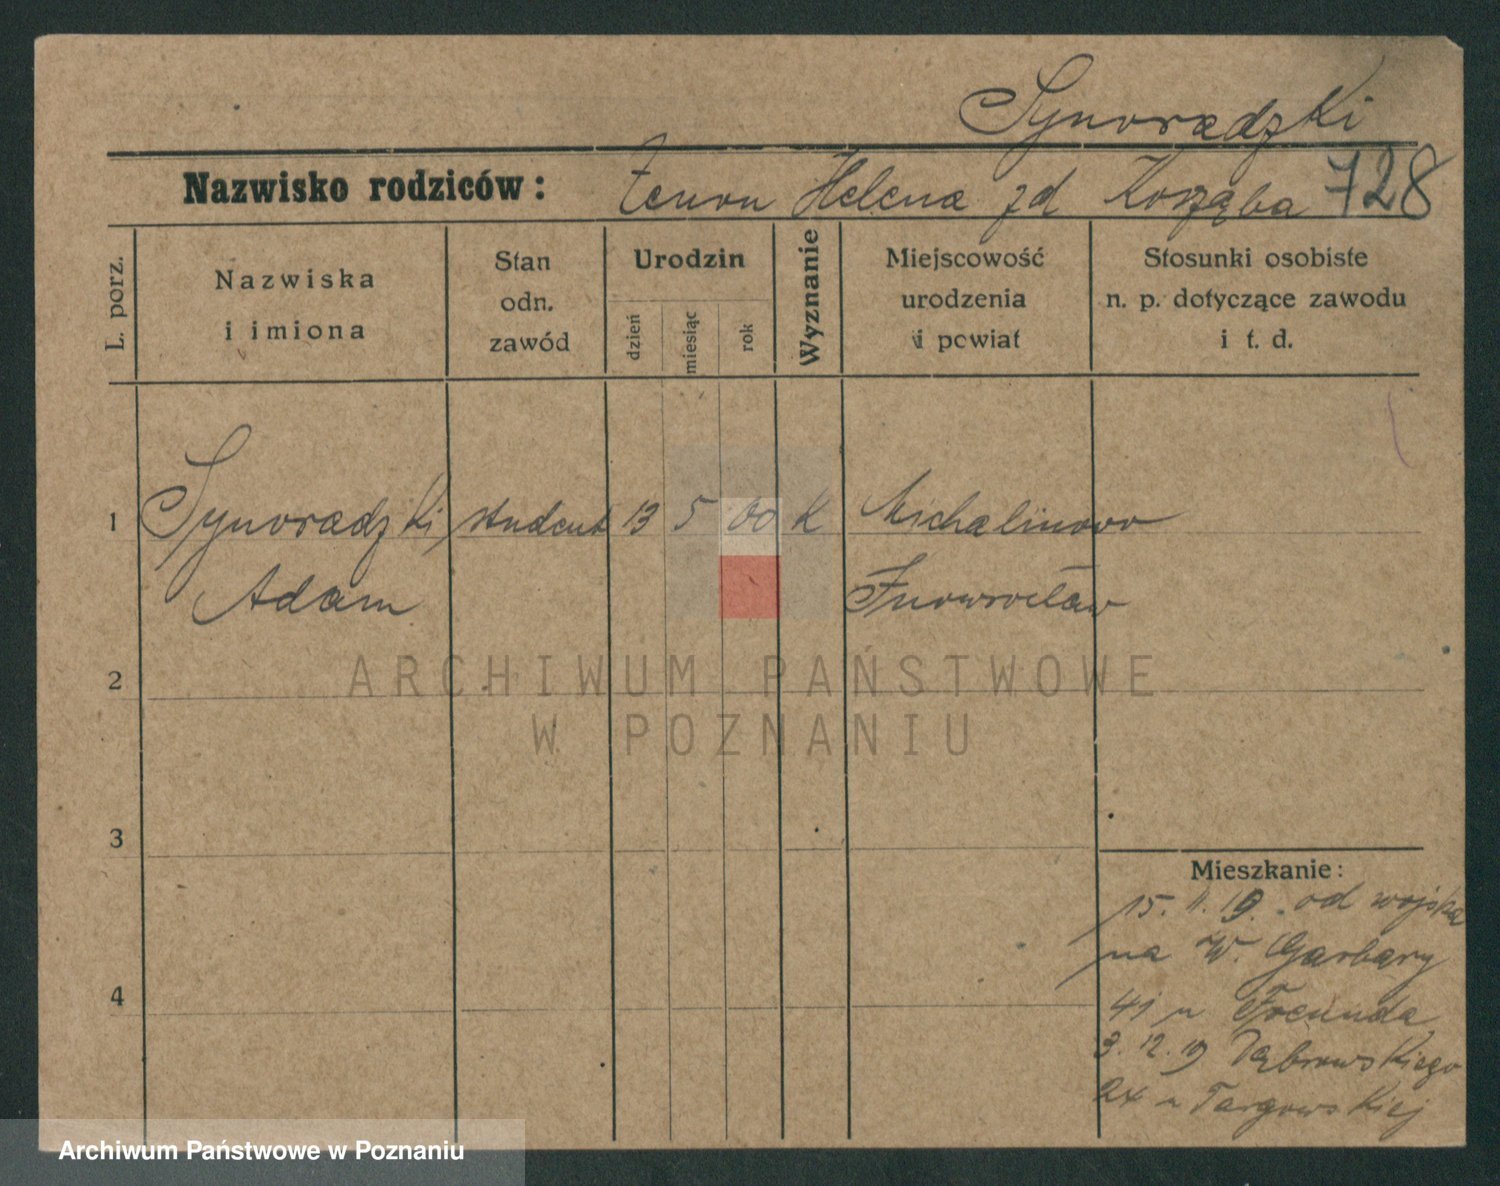 Synoradzki
Nazwisko rodziców: Zenon Helena zd Korząba 728
L. porz.
Nazwiska
i imiona
Stan
odn.
zawód
Urodzin
dzień
miesiąc
rok
Wyznanie
Miejscowość
urodzenia
i powiat
Stosunki osobiste
n. p. dotyczące zawodu
i t. d.
1 Synoradzki student 13 5 00 K Michalinowo
Adam Inowrocław
2
3
4
Mieszkanie:
15. 11. 19. od wojska
na W. Garbary
41 u
3. 12. 19 Dąbrowskiego
u Targowskiej
ARCHIWUM PAŃSTWOWE
W POZNANIU
Archiwum Państwowe w Poznaniu